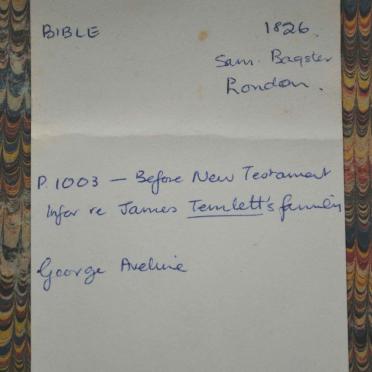 BIBLE 1826.
Sam. Bagster
London.
P. 1003 — Before New Testament
Infor re James Temlett's family
George Aveline